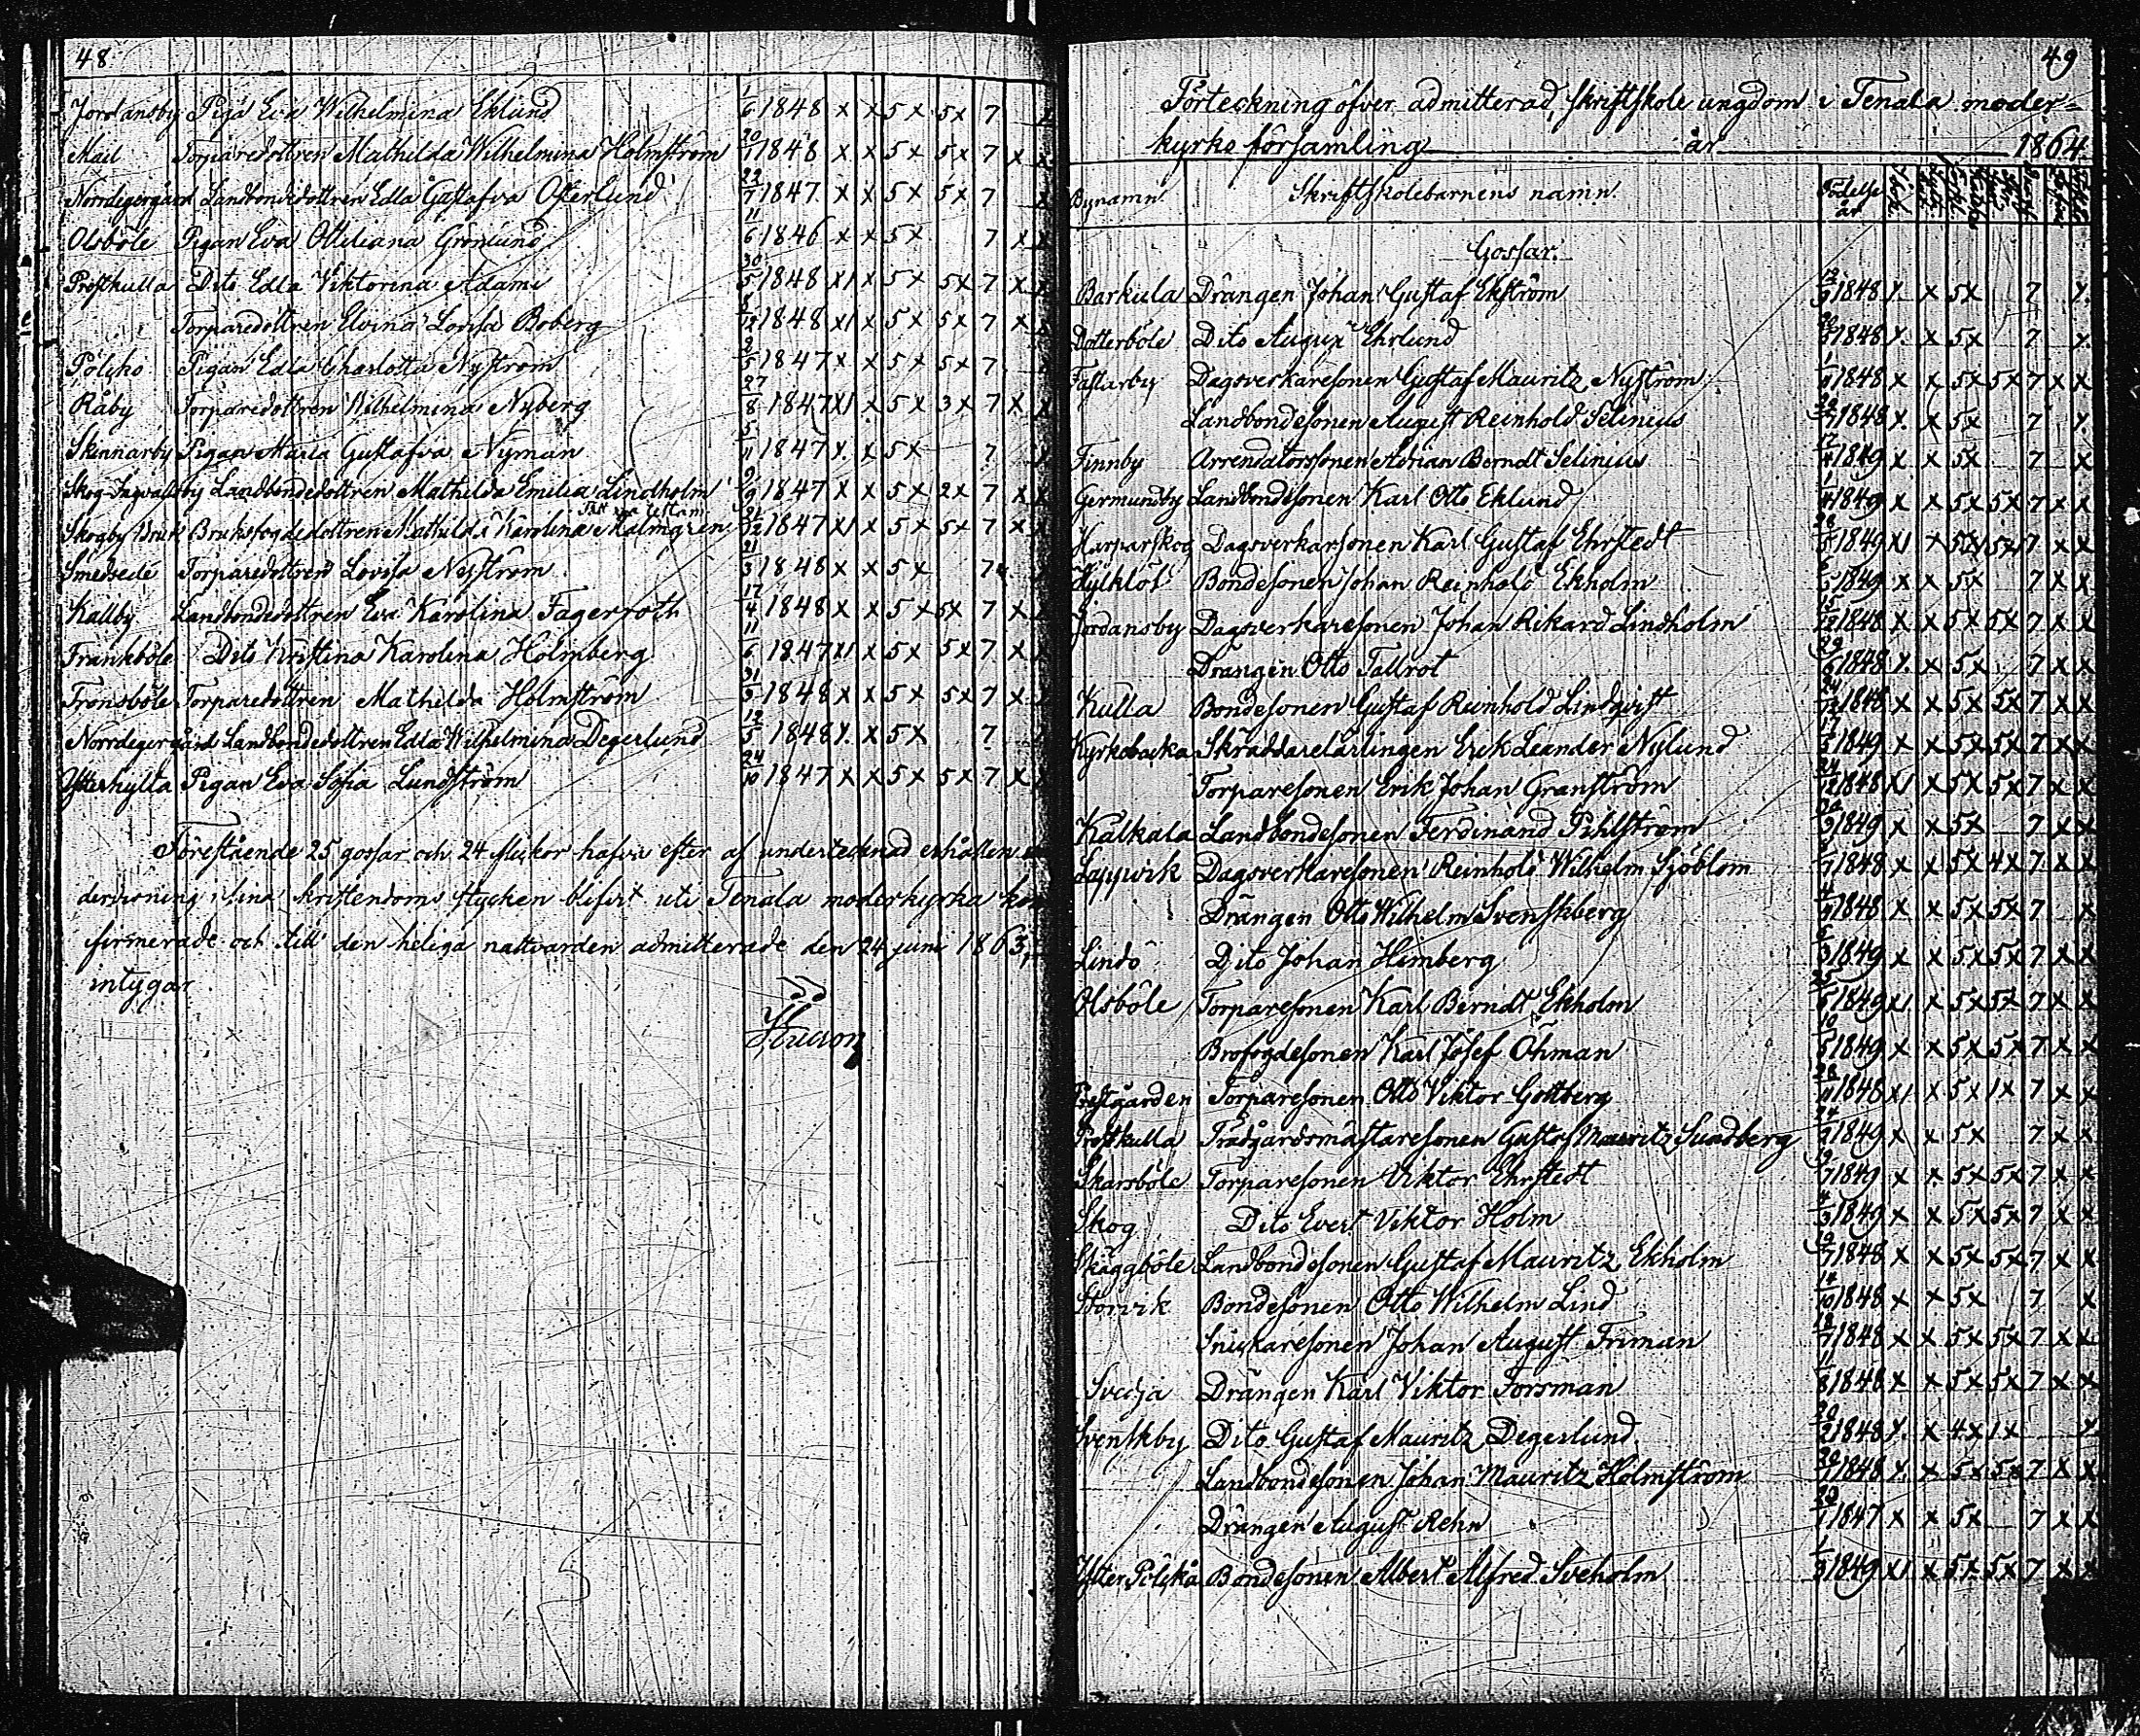 48
Jordansby Piga Eva Wilhelmina Eklund 1/6 1848 x x 5x 5x 7
Mail Torparedottren Mathilda Wilhelmina Holmström 20/1 1848 x x 5x 5x 7 x x
Norrdegergård Landbondedottren Edla Gustafva Österlund 22/7 1847 x x 5x 5x 7 x
Olsböle Pigan Eva Ottiliana Grönlund 11/6 1846 x x 5x 7 x x
Prostkulla Dito Edla Viktorina Adami 30/5 1848 x1 x 5x 5x 7 x x
Torparedottren Elvina Lovisa Boberg 8/12 1848 x1 x 5x 5x 7 x x
Pölsko Pigan Edla Charlotta Nyström 2/5 1847 x x 5x 5x 7
Råby Torparedottren Wilhelmina Nyberg 27/8 1847 x1 x 5x 3x 7 x x
Skinnarby Pigan Maria Gustafva Nyman 5/11 1847 x. x 5x 7 x
Skog-Ingvallsby Landbondedottren Mathilda Emilia Lindholm 9/9 1847 x x 5x 2x 7 x x
Skogby Bruk Bruksfogdedottren Mathilda Karolina Malmgren 21/12 1847 x1 x 5x 5x 7 x x
Smedsede Torparedottren Lovisa Nyström 21/3 1848 x x 5x 7
Kallby Landbondedottren Eva Karolina Fagerroth 17/4 1848 x x 5x 5x 7 x
Frankböle Dito Kristina Karolina Holmberg 11/6 1847 x1 x 5x 5x 7 x x
Tronsböle Torparedottren Mathilda Holmström 31/3 1848 x x 5x 5x 7 x
Norrdegergård Landbondedottren Edla Wilhelmina Degerlund 12/5 1848 x. x 5x 7
Ytterhylta Pigan Eva Sofia Lundström 24/10 1847 x x 5x 5x 7 x
Förestående 25 gossar och 24 flickor hafva efter af undertecknad erhållen
dervisning i sina kristendoms stycken blifvit uti Tenala moderkyrka
firmerade och till den heliga nattvarden admitterade den 24 juni 1863,
intygar
49
Förteckning öfver admitterad skriftskole ungdom i Tenala moder=
kyrko församling år 1864
Bynamn Skriftskolebarnens namn. Födelse år
Gossar.
Barkula Drängen Johan Gustaf Ekström 1848 x. x 5x 7 x.
Dotterböle Dito August Ehrlund 1848 x. x 5x 7 x.
Fastarby Dagsverkaresonen Gustaf Mauritz Nyström 1848 x x 5x 5x 7 x x
Landbondesonen August Reinhold Selinius 1848 x. x 5x 7 x.
Finnby Arrendatorssonen Adrian Berndt Selinius 1849 x x 5x 7 x
Germundby Landbondesonen Karl Otto Eklund 1849 x x 5x 5x 7 x x
Harparskog Dagsverkarsonen Karl Gustaf Ehrstedt 1849 x1 x 5x 5x 7 x x
Hylklöt Bondesonen Johan Reinhold Ekholm 1849 x x 5x 7 x x
Jordansby Dagsverkaresonen Johan Rikard Lindholm 15/12 1848 x x 5x 5x 7 x x
Drängen Otto Tallrot 29/6 1848 x. x 5x 7 x x
Kulla Bondesonen Gustaf Reinhold Lindqvist 1848 x x 5x 5x 7 x x
Kyrkobacka Skräddarelärlingen Erik Leander Nylund 1849 x x 5x 5x 7 x x
Torparesonen Erik Johan Granström 24/12 1848 x1 x 5x 5x 7 x x
Kälkala Landbondesonen Ferdinand Pihlström 1849 x x 5x 7 x x
Lappvik Dagsverkaresonen Reinhold Wilhelm Sjöblom 1848 x x 5x 4x 7 x x
Drängen Otto Wilhelm Svenskberg 1848 x x 5x 5x 7 x
Lindö Dito Johan Himberg 1849 x x 5x 5x 7 x x
Olsböle Torparesonen Karl Berndt Ekholm 1849 x1 x 5x 5x 7 x x
Brofogdesonen Karl Josef Öhman 1849 x x 5x 5x 7 x x
Prestgården Torparesonen Otto Viktor Gottberg 28/11 1848 x1 x 5x 1x 7 x x
Prostkulla Trädgårdsmästaresonen Gustaf Mauritz Sundberg 24/2 1849 x x 5x 7 x x
Skarsböle Torparesonen Viktor Ehrstedt 1849 x x 5x 5x 7 x x
Skog Dito Evert Viktor Holm 4/3 1849 x x 5x 5x 7 x x
Skäggböle Landbondesonen Gustaf Mauritz Ekholm 1848 x x 5x 5x 7 x x
Storvik Bondesonen Otto Wilhelm Lind 14/10 1848 x x 5x 7 x
Snickaresonen Johan August Friman 18/7 1848 x x 5x 5x 7 x x
Svedja Drängen Karl Viktor Forsman 11/8 1848 x x 5x 5x 7 x x
Svenskby Dito Gustaf Mauritz Degerlund 20/2 1848 x. x 4x 1x x.
Landbondesonen Johan Mauritz Holmström 1848 x x 5x 5x 7 x x
Drängen August Rehn 20/1 1847 x x 5x 7 x x
Ytter Pölskå Bondesonen Albert Alfred Sveholm 1/3 1849 x1 x 5x 5x 7 x x